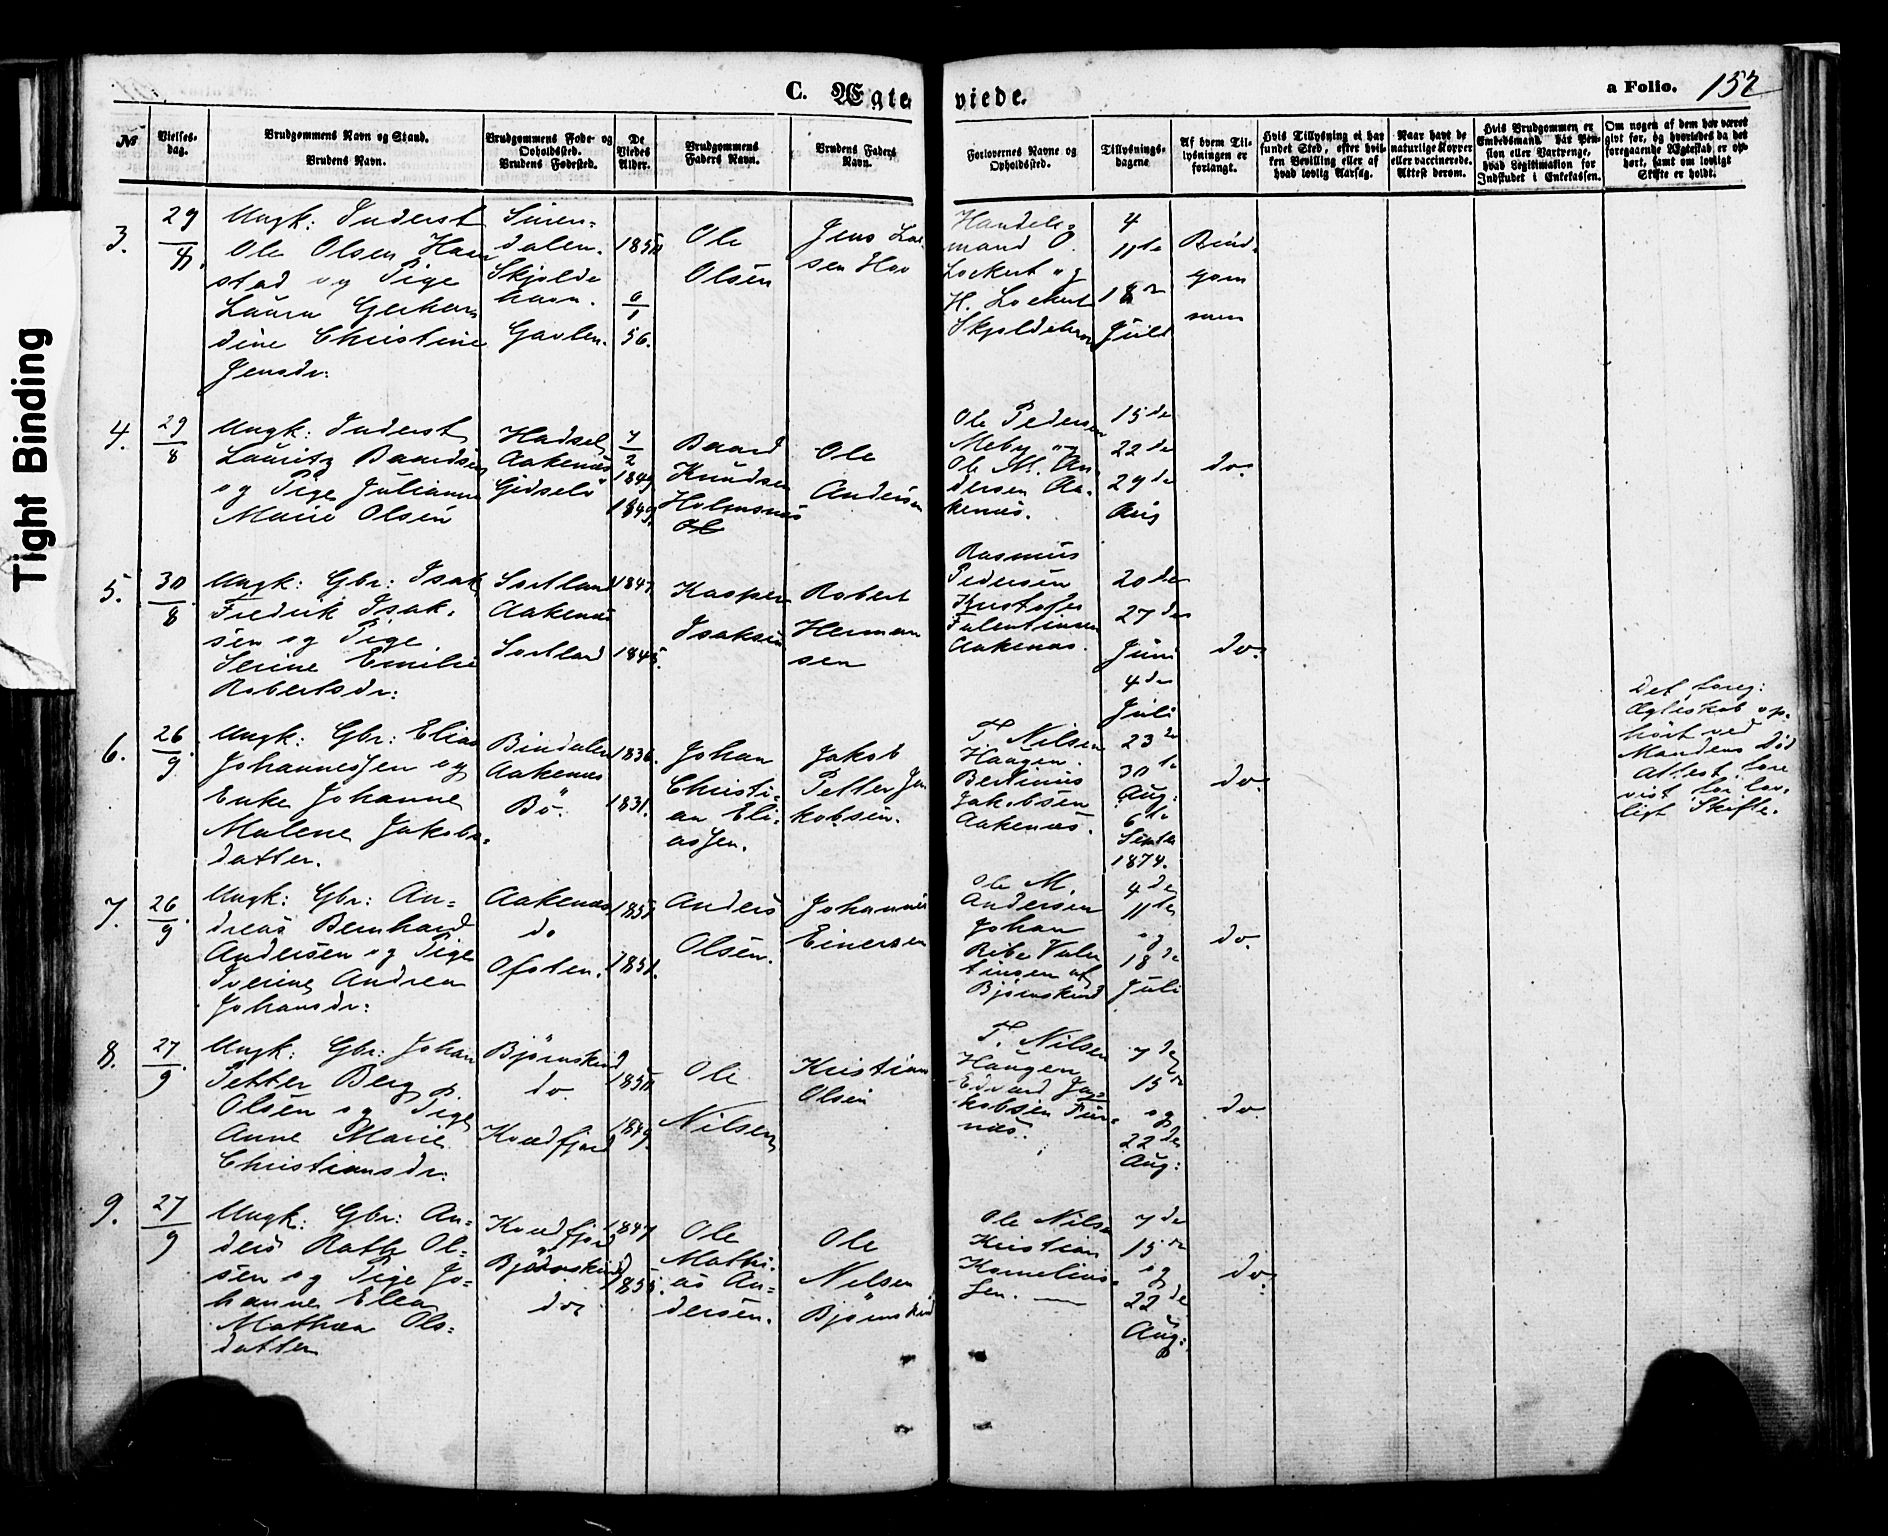 Tight Binding
C. Ægte viede. a Folio. 152
No
Vielses-
dag.
Brudgommens Navn og Stand.
Brudens Navn.
Brudgommens Føde- og
Opholdssted.
Brudens Fødested.
De
Viedes
Alder.
Brudgommens
Faders Navn.
Brudens Faders
Navn.
Forlovernes Navne og
Opholdssted.
Tillysnings-
dagene.
Af hvem Til-
lysningen er
forlangt.
Hvis Tillysning ei har
fundet Sted, efter hvil-
ken Bevilling eller af
hvad lovlig Aarsag.
Naar havt de
naturlige Kopper
eller vaccinerede.
Attest derom.
Hvis Brudgommen er
Embedsmand, har Pen-
sion eller Vartpenge,
hvad Legitimation for
Indskudet i Enkekassen.
Om nogen af dem har været
gift før, og hvorledes da det
foregaaende Ægteskab er op-
hørt, samt om lovligt
Skifte er holdt.
3.
29/8.
Ungk: Inderst
Ole Olsen
stad og Pige
Laura Gerhar
dine Christine
Jensdr:
dalen.
Skjolde
havn.
Gavlen.
1850
6/1
56.
Ole
Olsen
Jens Lar
sen Hov
Handels-
mand O.
Lockert og
H. Lockert
Skjoldehavn
4
11te
18de
Juli
Brud-
gom
men
4.
29/8
Ungk: Inderst
Lauritz Baardsen
og Pige Julianne
Marie Olsen
Hadsel
Aakenæs
Gidselø
7/2
1849
1849.
Baard
Knudsen
Holmsnæs
Ole
Andersen
Ole Pedersen
Meby og
Ole M. An-
dersen Aa-
kenæs.
15de
22de
29de
Aug
do.
5.
30/8.
Ungk: Gbr: Isak
Fredrik Isak-
sen og Pige
Serine Emilie
Robertsdr:
Sortland
Aakenæs
Sortland
1847.
1845.
Kasper
Isaksen
Robert
Herman
sen
Rasmus
Pedersen
Kristofer
Falentinsen
Aakenæs.
20de
27de
Juni
4de
Juli
do.
6.
26/9
Ungk: Gbr: Elias
Johannessen og
Enke Johanne
Malene Jakobs-
datter.
Bindalen
Aakenæs
Bø.
1836.
1831.
Johan
Christi-
an Eli-
assen.
Jakob
Petter Ja
kobsen.
T. Nilsen
Haugen.
Bertinus
Jakobsen
Aakenæs.
23de
30te
Aug:
6te
Septbr
1874.
do.
Det foreg:
Ægteskab op-
hørt ved
Mandens Død
Attest fore
vist for lov-
ligt Skifte.
7.
26/9.
Ungk: Gbr: An-
dreas Bernhard
Andersen og Pige
Iverine Andrea
Johansdr:
Aakenæs
do
Ofoten.
1851
1851.
Anders
Olsen.
Johannes
Einersen
Ole M.
Andersen
Johan
Ribe Valen
tinsen af
Bjørnskind
4de
11te
og
18de
Juli
do.
8.
27/9.
Ungk: Gbr: Johan
Petter Berg
Olsen og Pige
Anne Marie
Christiansdr:
Bjørnskind
do.
Kvædfjord
1850
1849.
Ole
Nilsen
Kristian
Olsen
T. Nilsen
Haugen
Edvard Ja-
kobsen Fin-
næs.
7de
15de
og
22de
Aug:
do.
9.
27/9
Ungk: Gbr: An-
ders Rath Ol-
sen og Pige Jo-
hanne Elea
Mathea Ols-
datter
Kvædfjord
Bjørnskind
do
1847
1855.
Ole
Mathi-
as An-
dersen.
Ole
Nilsen
Bjørnskind
Ole Nilsen
Kristian
Kornelius-
sen.
7de
15de
og
22de
Aug:
do.